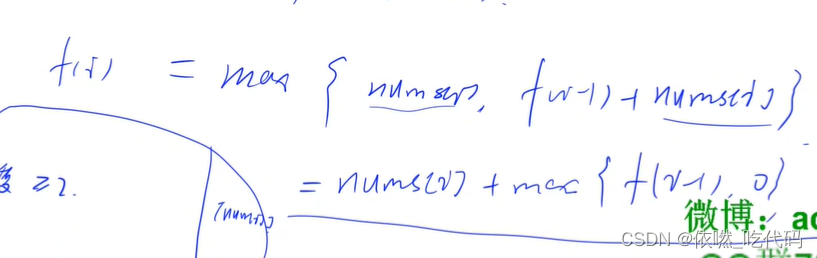 f(i) = max { nums[i], f(i-1) + nums[i] }
= nums[i] + max { f(i-1), 0 }
≥2.
nums[i]
微博: ac
CSDN @依嘫_吃代码